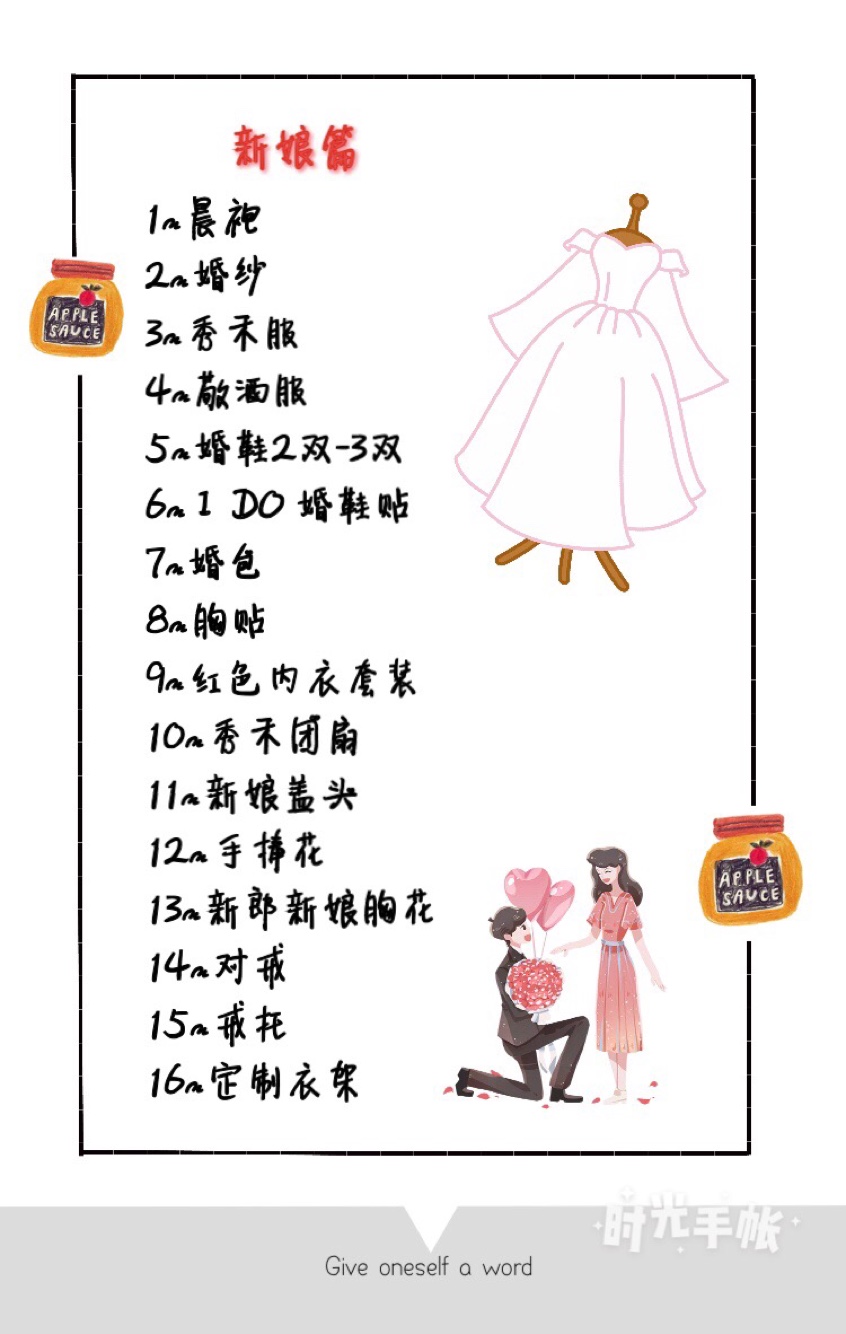 新娘篇
1~晨袍
2~婚纱
3~秀禾服
4~敬酒服
5~婚鞋2双-3双
6~I DO 婚鞋贴
7~婚包
8~胸贴
9~红色内衣套装
10~秀禾团扇
11~新娘盖头
12~手捧花
13~新郎新娘胸花
14~对戒
15~戒托
16~定制衣架
APPLE
SAUCE
APPLE
SAUCE
时光手帐
Give oneself a word